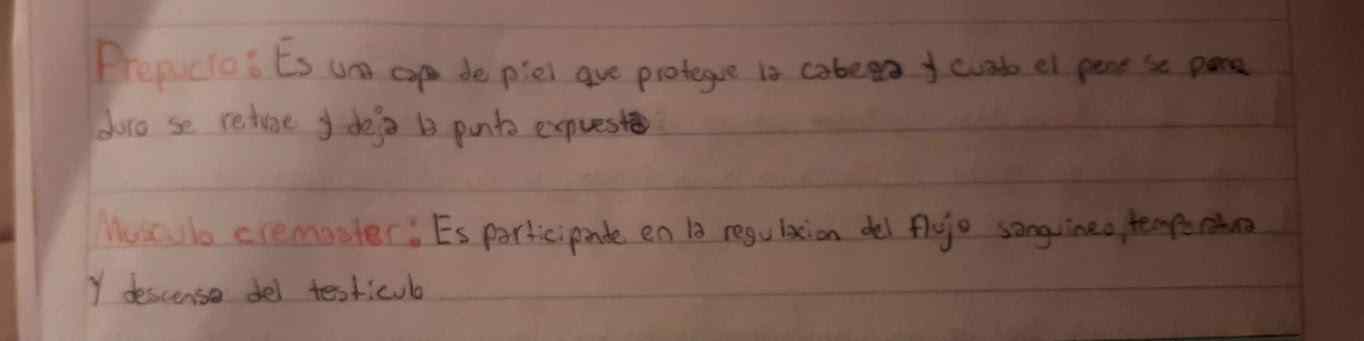 Prepucio: Es una capa de piel que protegue la cabeza y cuado el pene se pone
duro se retrae y deja la punta expuesta
Musculo cremaster: Es participante en la regulacion del flujo sanguineo, temperatura
Y descenso del testiculo